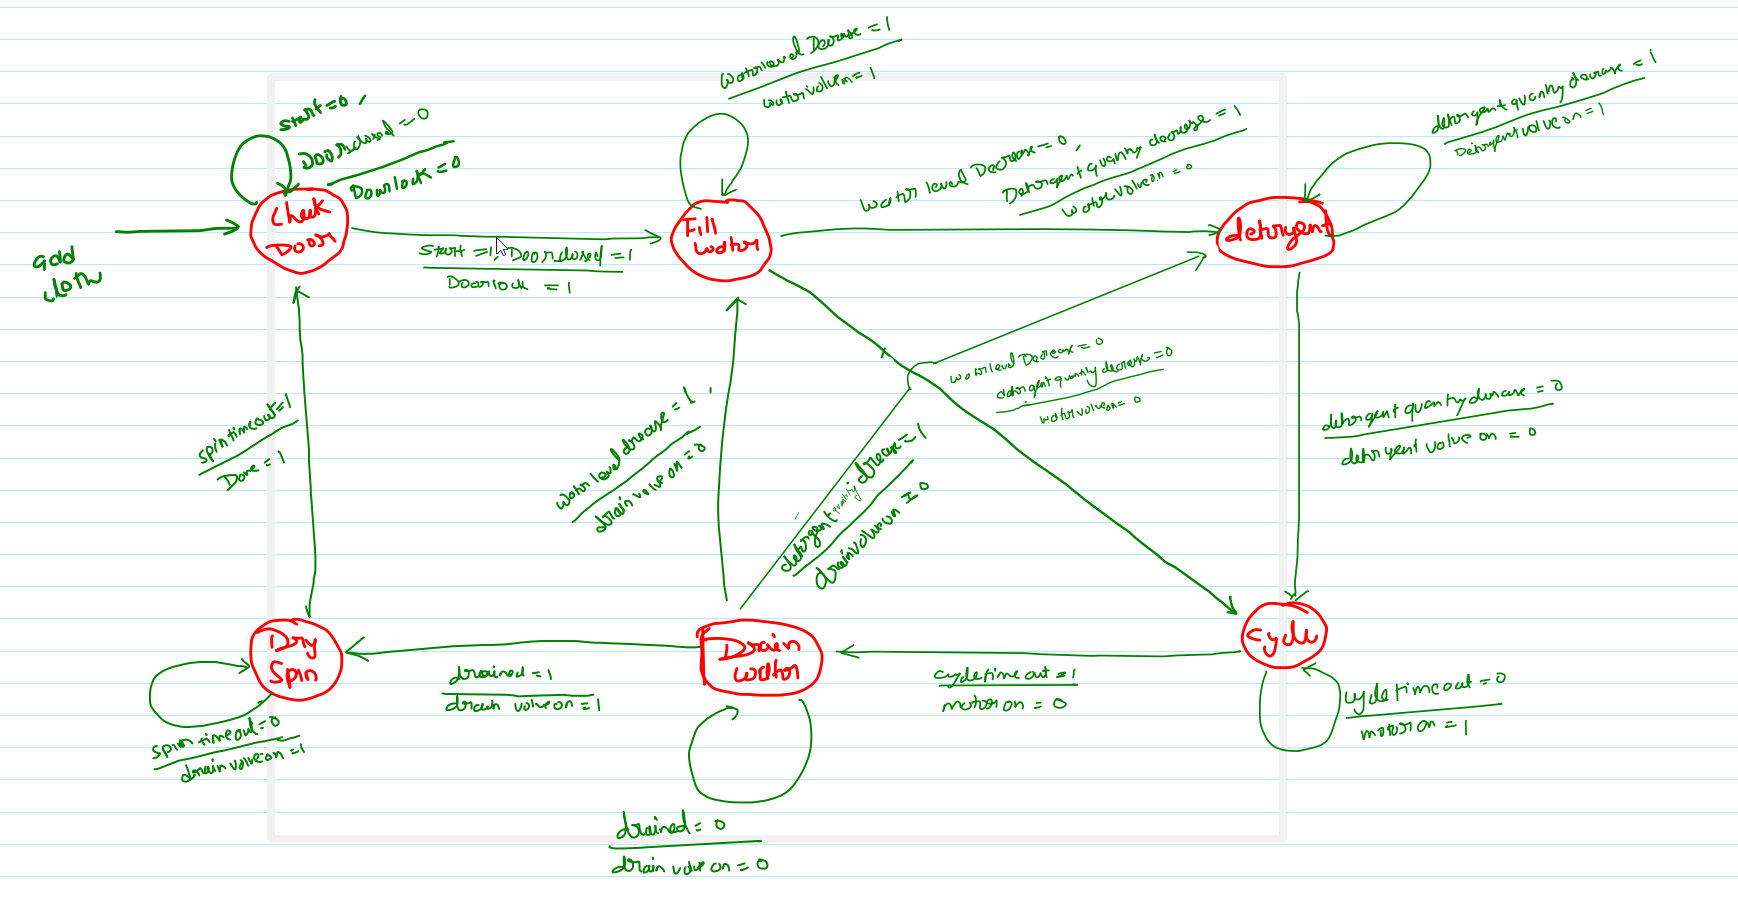 add
cloth
start=0,
Doorclosed=0
Doorlock=0
Check
Door
start=1, Doorclosed=1
Doorlock=1
waterlevel Decrease=1
watervalveon=1
Fill
water
water level Decrease=0,
Detergent quantity decrease=1
watervalveon=0
detergent quantity decrease=1
Detergentvalveon=1
detergent
waterlevel Decrease=0
detergent quantity decrease=0
watervalveon=0
detergent quantity decrease=0
detergent valve on=0
waterlevel decrease=1,
drainvalve on=0
detergent quantity decrease=1
drainvalveon=0
spintimeout=1
Done=1
Dry
Spin
spin timeout=0
drain valve on=1
drained=1
drain valve on=1
Drain
water
drained=0
drain valve on=0
cycletimeout=1
motor on=0
cycle
cycle timeout=0
motor on=1